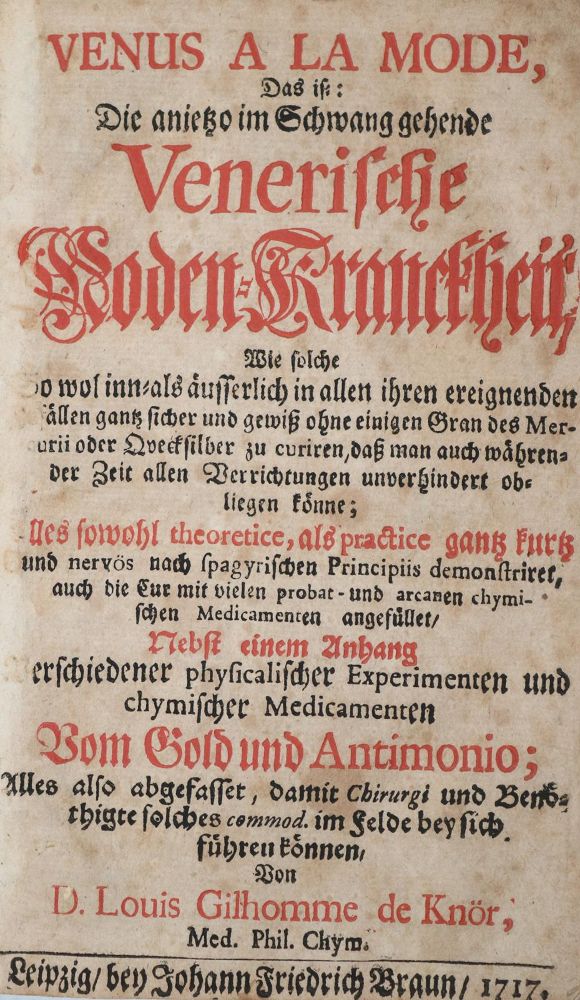 VENUS A LA MODE,
Das iſt:
Die anietzo im Schwang gehende
Veneriſche
Moden-Kranckheit,
Wie ſolche
So wol inn-als äuſſerlich in allen ihren ereignenden
Fällen gantz ſicher und gewiß ohne einigen Gran des Mer-
curii oder Qveckſilber zu curiren, daß man auch währen-
der Zeit allen Verrichtungen unverhindert ob-
liegen könne;
Alles ſowohl theoretice, als practice gantz kurtz
und nervös nach ſpagyriſchen Principiis demonſtriret,
auch die Cur mit vielen probat- und arcanen chymi-
ſchen Medicamenten angefüllet/
Nebſt einem Anhang
erſchiedener phyſicaliſcher Experimenten und
chymiſcher Medicamenten
Vom Gold und Antimonio;
Alles alſo abgefaſſet, damit Chirurgi und Benö-
thigte ſolches commod. im Felde bey ſich
führen können,
Von
D. Louis Gilhomme de Knör,
Med. Phil. Chym.
Leipzig/ bey Johann Friedrich Braun/ 1717.